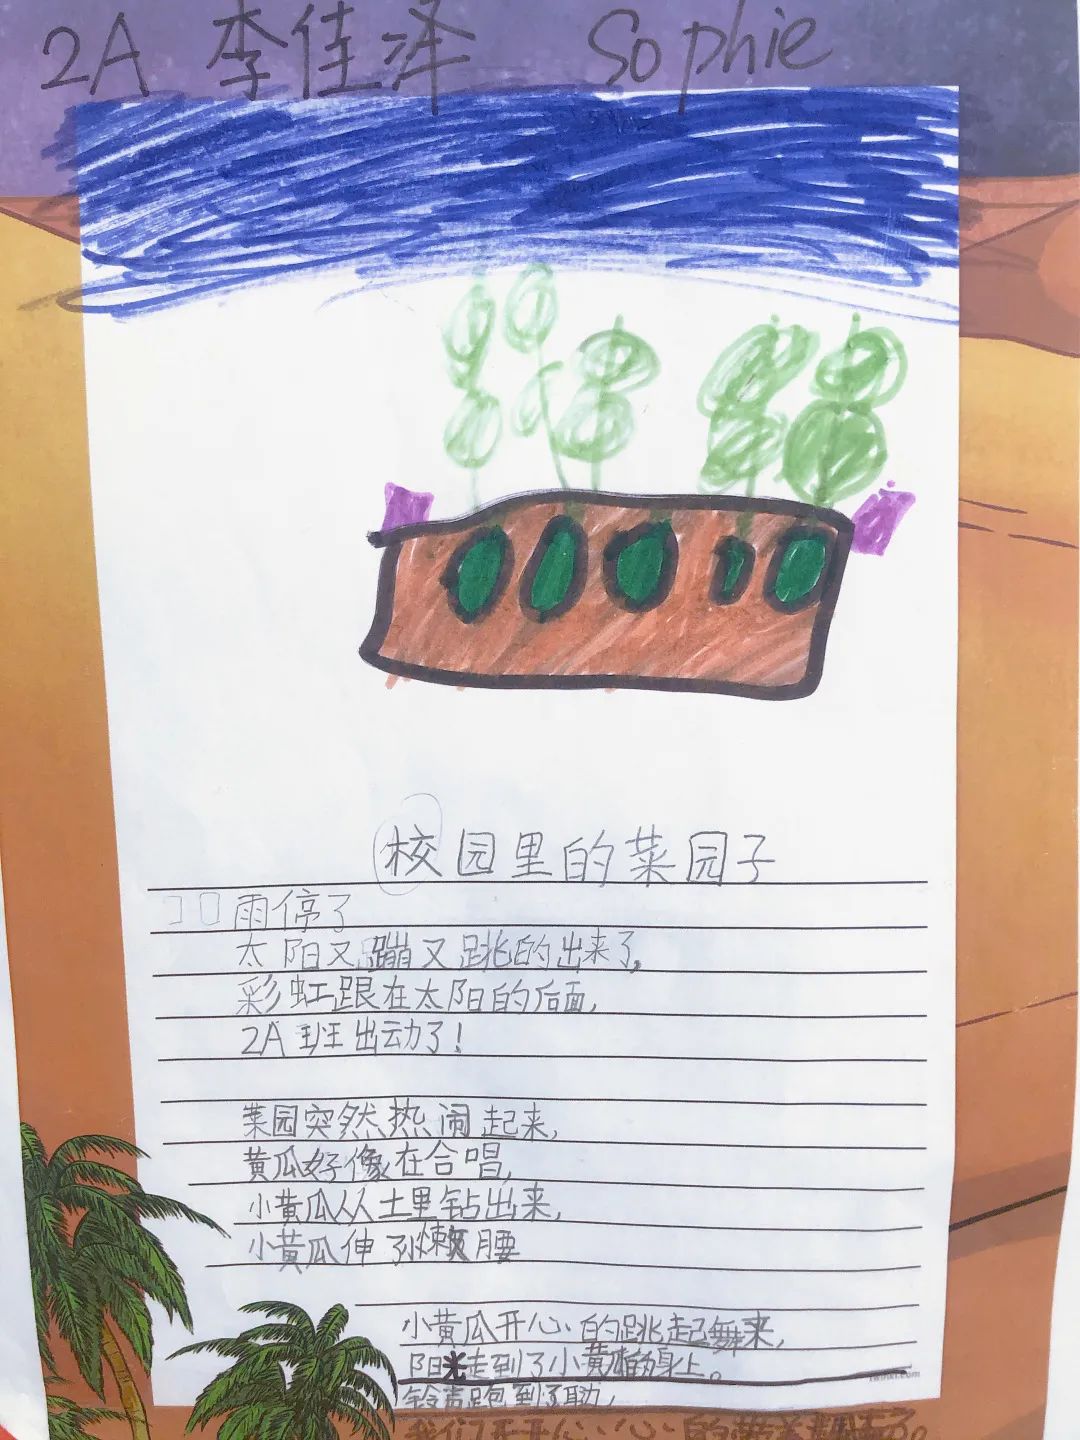 2A 李佳泽 Sophie
校园里的菜园子
雨停了
太阳又蹦又跳的出来了,
彩虹跟在太阳的后面,
2A班出动了!
菜园突然热闹起来,
黄瓜好像在合唱,
小黄瓜从土里钻出来,
小黄瓜伸了懒腰
小黄瓜开心的跳起舞来,
阳光走到了小黄瓜的身上。
铃声跑到了耳边,
我们开开心心的